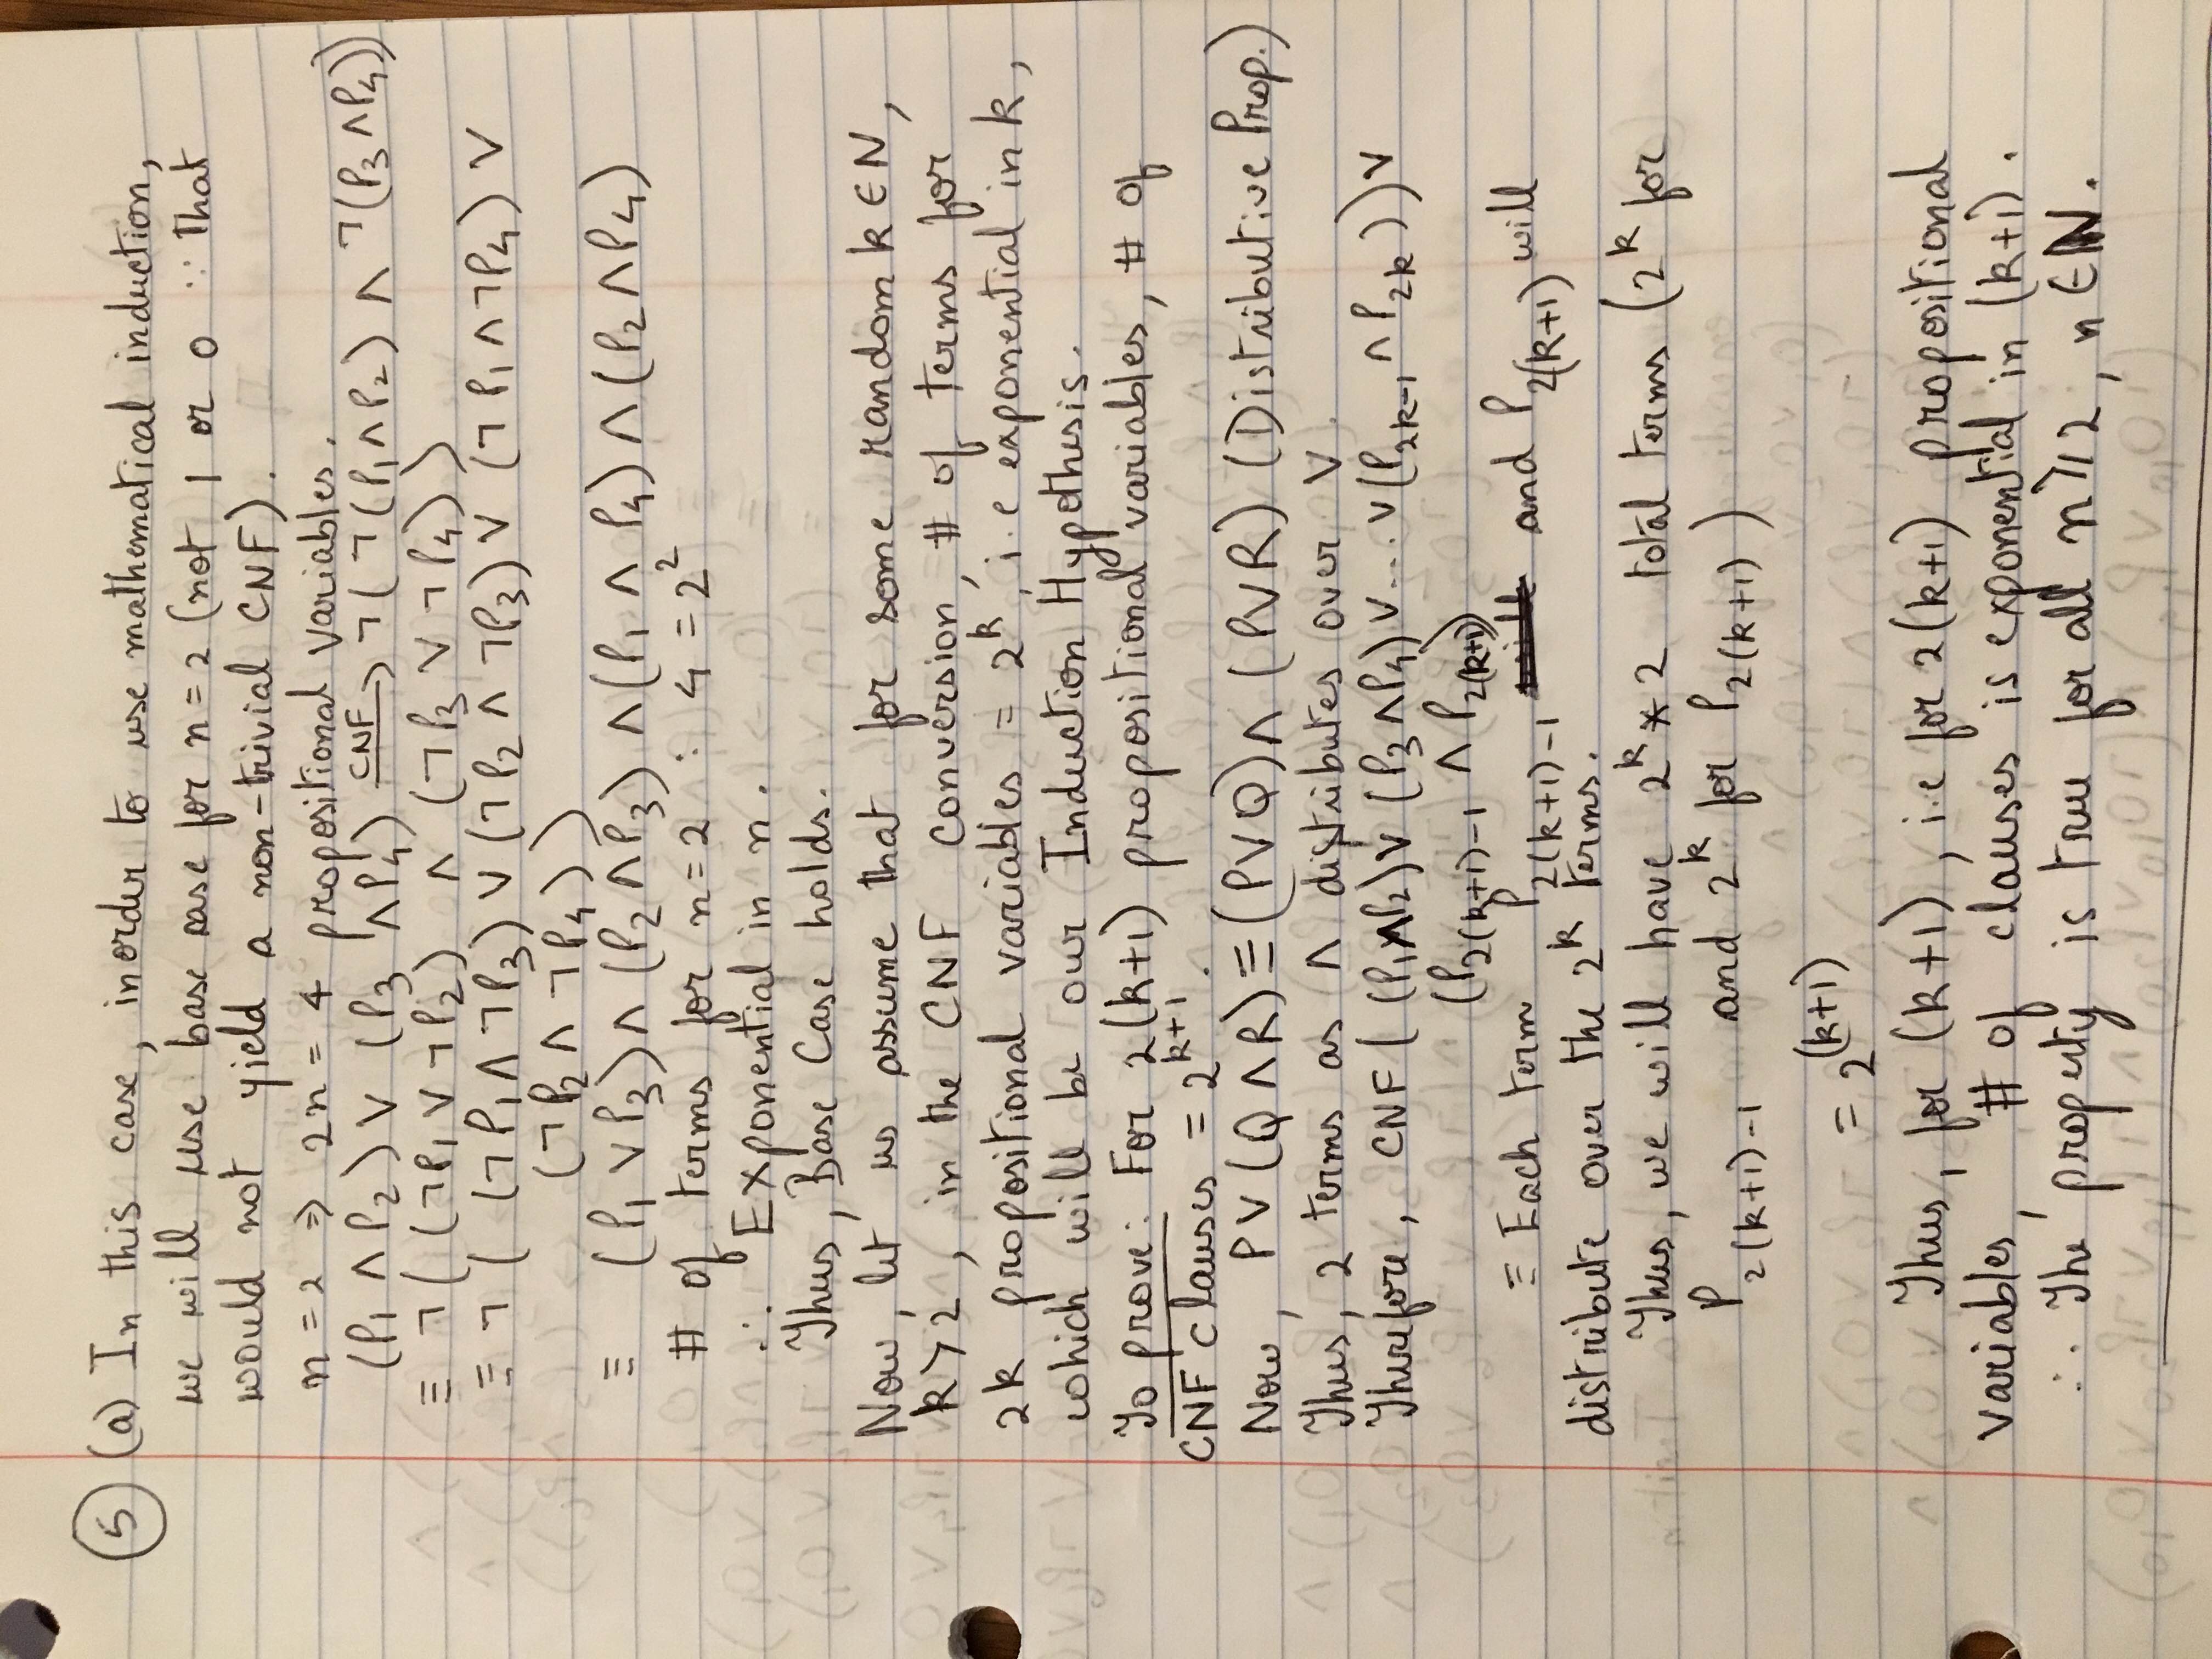 5 (a) In this case, inorder to use mathematical induction,
we will use base case for n = 2 (not 1 or 0 ∵ that
would not yield a non-trivial CNF).
n = 2 ⇒ 2n = 4 propositional variables.
(P₁ ∧ P₂) ∨ (P₃ ∧ P₄) —CNF→ ¬(¬(P₁ ∧ P₂) ∧ ¬(P₃ ∧ P₄))
≡ ¬((¬P₁ ∨ ¬P₂) ∧ (¬P₃ ∨ ¬P₄))
≡ ¬((¬P₁ ∧ ¬P₃) ∨ (¬P₂ ∧ ¬P₃) ∨ (¬P₁ ∧ ¬P₄) ∨
(¬P₂ ∧ ¬P₄))
≡ (P₁ ∨ P₃) ∧ (P₂ ∧ P₃) ∧ (P₁ ∧ P₄) ∧ (P₂ ∧ P₄)
# of terms for n = 2 : 4 = 2²
∴ Exponential in n.
Thus, Base Case holds.
Now, let us assume that for some random k ∈ N,
k > 2, in the CNF conversion, # of terms for
2k propositional variables = 2^k, i.e exponential in k,
which will be our Induction Hypothesis.
To prove: For 2(k+1) propositional variables, # of
CNF clauses = 2^(k+1).
Now, P ∨ (Q ∧ R) ≡ (P ∨ Q) ∧ (P ∨ R) (Distributive Prop.)
Thus, 2 terms as ∧ distributes over ∨.
Therefore, CNF((P₁ ∧ P₂) ∨ (P₃ ∧ P₄) ∨ ... ∨ (P_{2k-1} ∧ P_{2k})) ∨
(P_{2(k+1)-1} ∧ P_{2(k+1)})
≡ Each term P_{2(k+1)-1} and P_{2(k+1)} will
distribute over the 2^k terms.
Thus, we will have 2^k * 2 total terms (2^k for
P_{2(k+1)-1} and 2^k for P_{2(k+1)})
= 2^(k+1)
Thus, for (k+1), i.e for 2(k+1) propositional
variables, # of clauses is exponential in (k+1).
∴ The property is true for all n ≥ 2, n ∈ N.